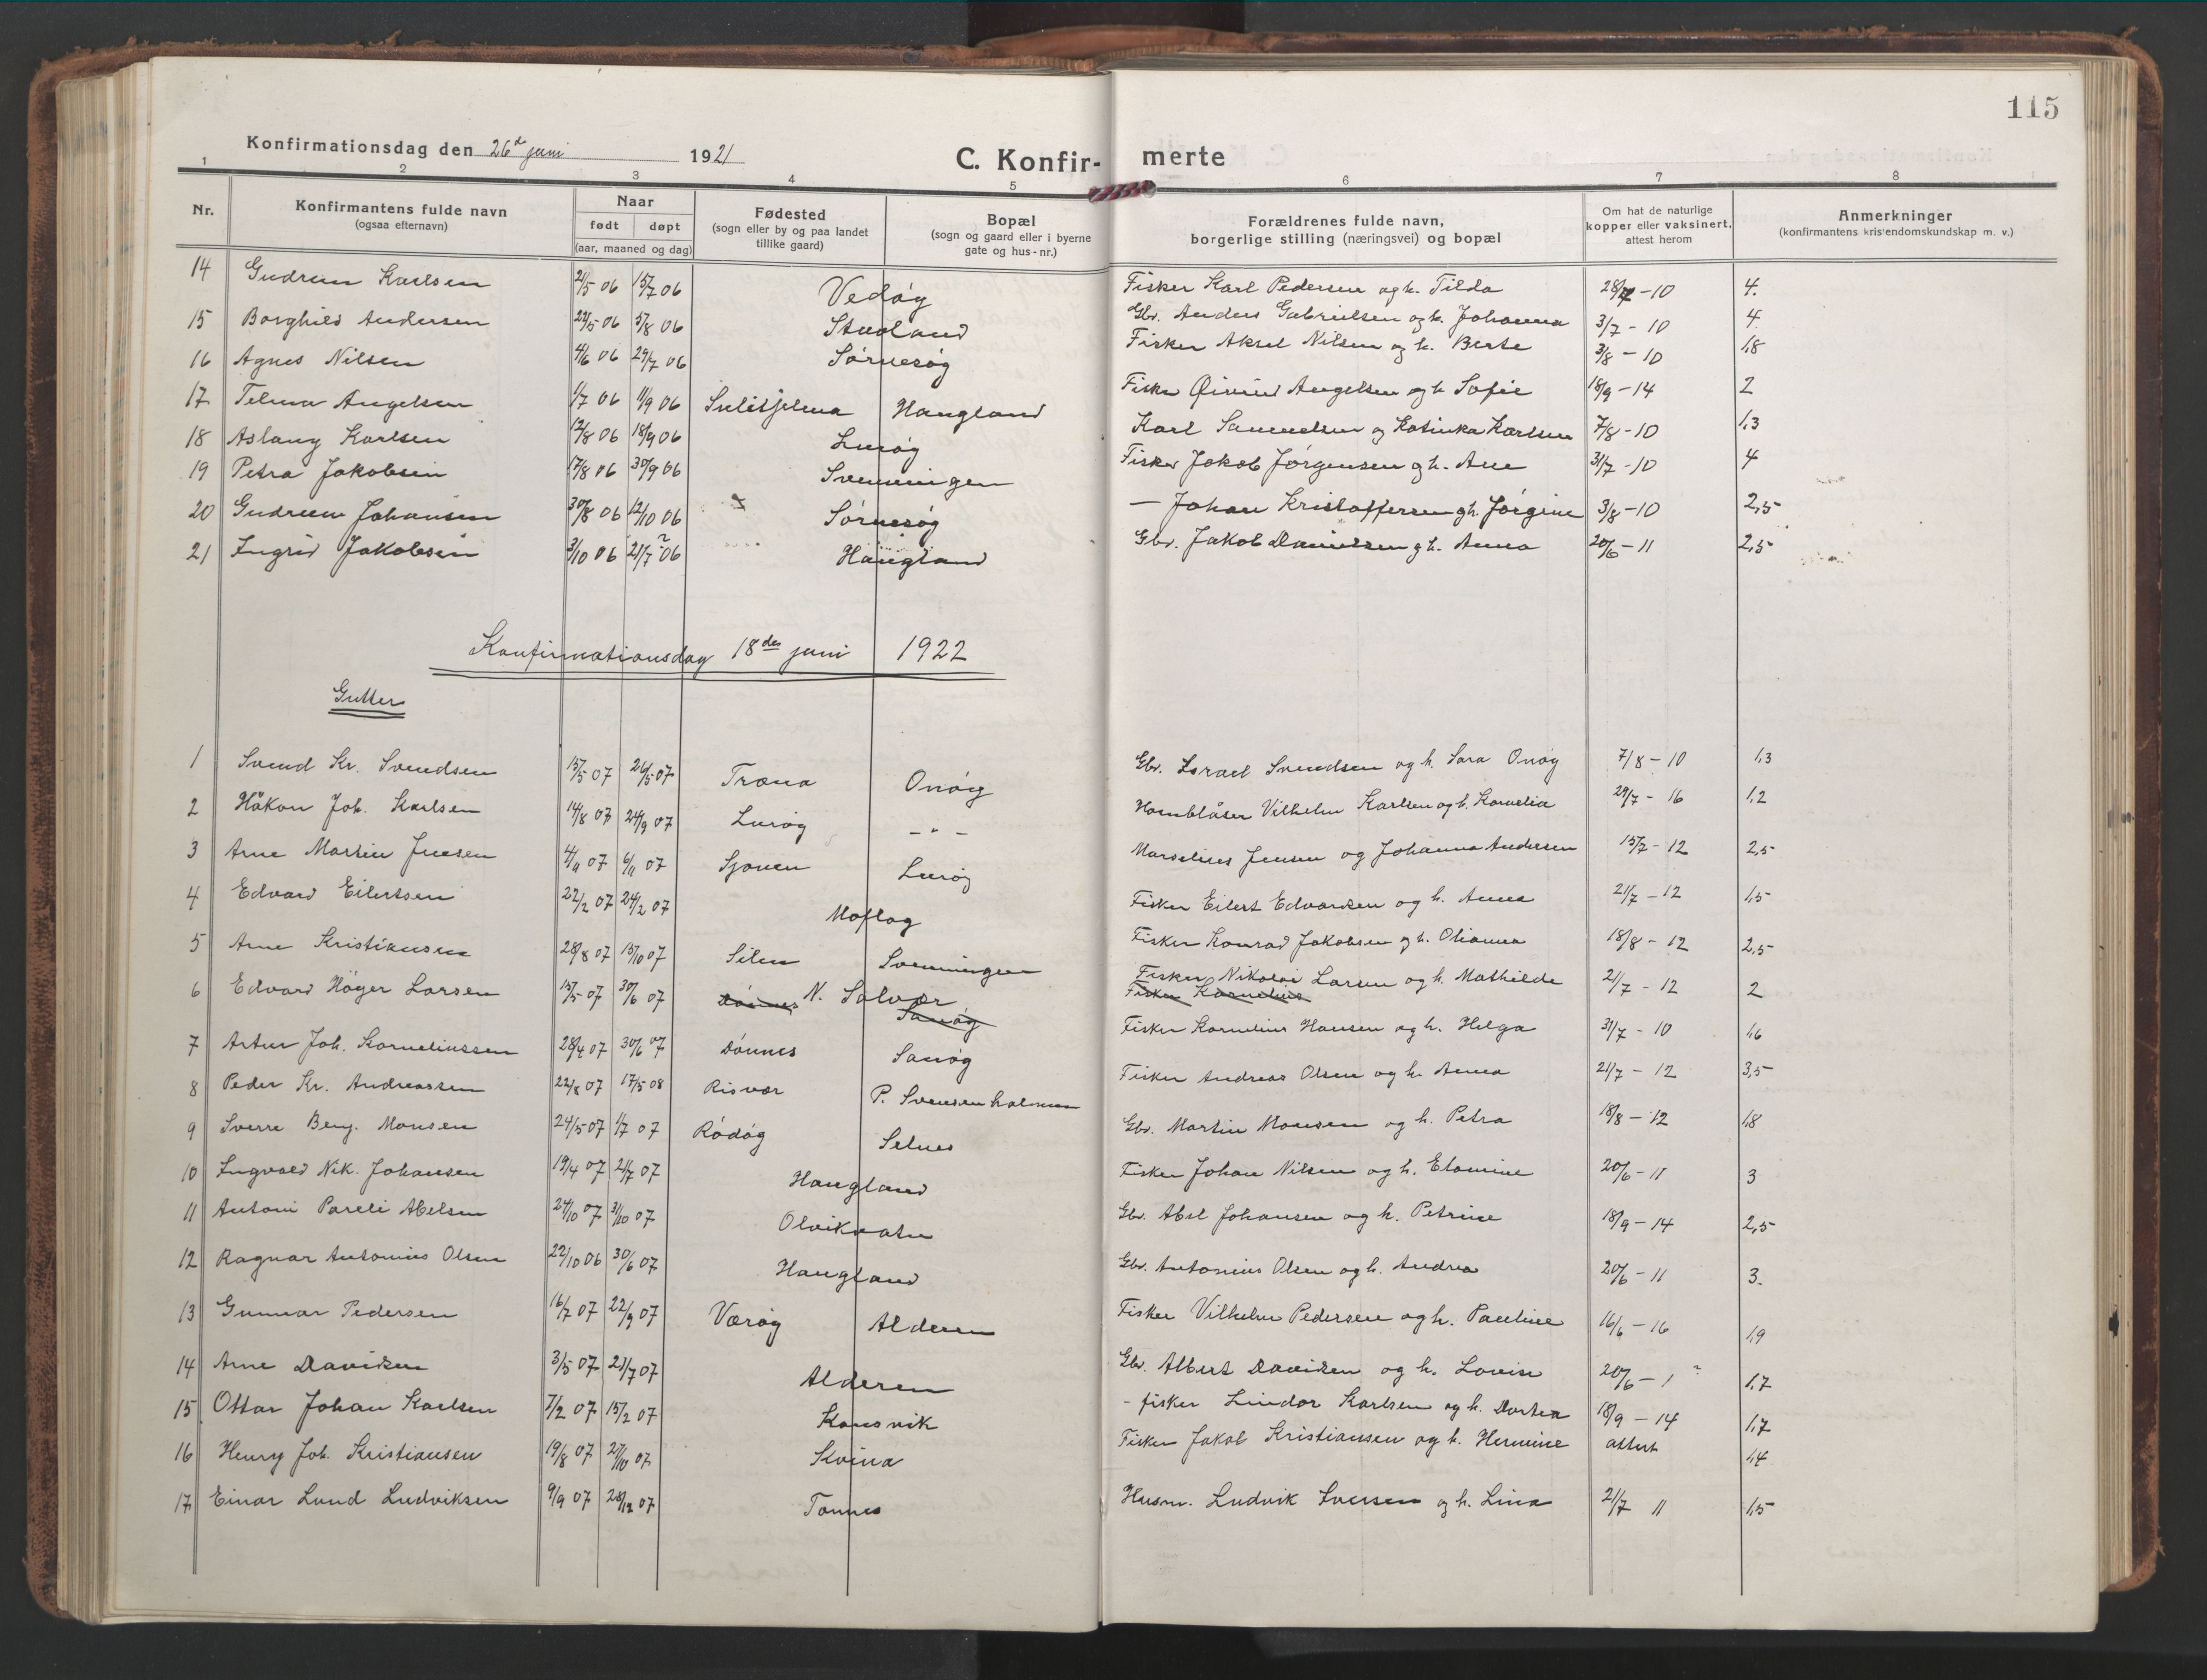 115
Konfirmationsdag den 26de juni 1921
C. Konfir- merte
1 2 3 4 5 6 7 8
Nr. | Konfirmantens fulde navn (ogsaa efternavn) | Naar født | døpt (aar, maaned og dag) | Fødested (sogn eller by og paa landet tillike gaard) | Bopæl (sogn og gaard eller i byerne gate og hus-nr.) | Forældrenes fulde navn, borgerlige stilling (næringsvei) og bopæl | Om hat de naturlige kopper eller vaksinert, attest herom | Anmerkninger (konfirmantens kristendomskundskap m. v.)
14 Gudrun Karlsen 2/5 06 15/7 06 Vedøy Fisker Karl Pedersen og h. Tilda 28/7 - 10 4.
15 Borghild Andersen 22/5 06 5/8 06 Stuvland Gbr. Anders Gabrielsen og h. Johanna 3/7 - 10 4.
16 Agnes Nilsen 4/6 06 29/7 06 Sørnesøy Fisker Aksel Nilsen og h. Berte 3/8 - 10 1,8
17 Telma Angelsen 1/7 06 11/9 06 Sulitjelma Haugland Fisker Øivind Angelsen og h. Sofie 18/9 - 14 2
18 Aslaug Karlsen 12/8 06 18/9 06 Lurøy Karl Samuelsen og Katinka Karlsen 7/8 - 10 1,3
19 Petra Jakobsen 17/8 06 30/9 06 Svenningen Fisker Jakob Jørgensen og h. Ane 31/7 - 10 4
20 Gudrun Johansen 30/8 06 12/10 06 Sørnesøy — Johan Kristoffersen og h. Jørgine 3/8 - 10 2,5
21 Ingrid Jakobsen 3/10 06 21/7 ? 06 Haugland Gbr. Jakob Danielsen og h. Anna 20/6 - 11 2,5
Konfirmationsdag 18des juni 1922
Gutter
1 Svend Kr. Svendsen 15/5 07 26/5 07 Træna Onøy Gbr. Israel Svendsen og h. Sara Onøy 7/8 - 10 1,3
2 Håkon Joh. Karlsen 14/8 07 24/9 07 Lurøy — " — Hornblåser Vilhelm Karlsen og h. Kornelia 29/7 - 16 1,2
3 Arne Martin Jensen 4/11 07 6/11 07 Sjonen Lurøy Marselius Jensen og Johanna Andersen 15/7 - 12 2,5
4 Edvard Eilertsen 22/2 07 24/2 07 Moflag Fisker Eilert Edvardsen og h. Anna 21/7 - 12 1,5
5 Arne Kristiansen 28/8 07 13/10 07 Silen Svenningen Fisker Konrad Jakobsen og h. Olianna 18/8 - 12 2,5
6 Edvard Høyer Larsen 15/5 07 30/6 07 Dønnes N. Solvær Sanøy Fisker Nikolai Larsen og h. Mathilde 21/7 - 12 2
Fisker Kornelius
7 Artur Joh. Korneliussen 28/4 07 30/6 07 Dønnes Sanøy Fisker Kornelius Hansen og h. Helga 31/7 - 10 1,6
8 Peder Kr. Andreassen 22/8 07 17/5 08 Risvær P. Svensenholmen Fisker Andreas Olsen og h. Anna 21/7 - 12 3,5
9 Sverre Benj. Monsen 24/5 07 1/7 07 Rødøy Selnes Gbr. Martin Monsen og h. Petra 18/8 - 12 1,8
10 Ingvald Nik. Johansen 19/4 07 21/7 07 Haugland Fisker Johan Nilsen og h. Elomine 20/6 - 11 3
11 Antoni Pareli Abelsen 24/10 07 31/10 07 Olvikvatn Gbr. Abel Johansen og h. Petrine 18/9 - 14 2,5
12 Ragnar Antonius Olsen 22/10 06 30/6 07 Haugland Gbr. Antonius Olsen og h. Andrea 20/6 - 11 3.
13 Gunnar Pedersen 16/7 07 22/9 07 Værøy Alderen Fisker Vilhelm Pedersen og h. Pauline 16/6 - 16 1,9
14 Arne Davidsen 3/5 07 21/7 07 Alderen Gbr. Albert Davidsen og h. Lovise 20/6 - 1 ? 1,7
15 Ottar Johan Karlsen 7/2 07 15/2 07 Konsvik - fisker Lindor Karlsen og h. Dortea 18/9 - 14 1,7
16 Henry Joh. Kristiansen 19/8 07 27/10 07 Kvina Fisker Jakob Kristiansen og h. Hermine attest 1,4
17 Einar Lund Ludviksen 9/9 07 28/12 07 Tonnes Husm. Ludvik Iversen og h. Lina 21/7 11 1,5